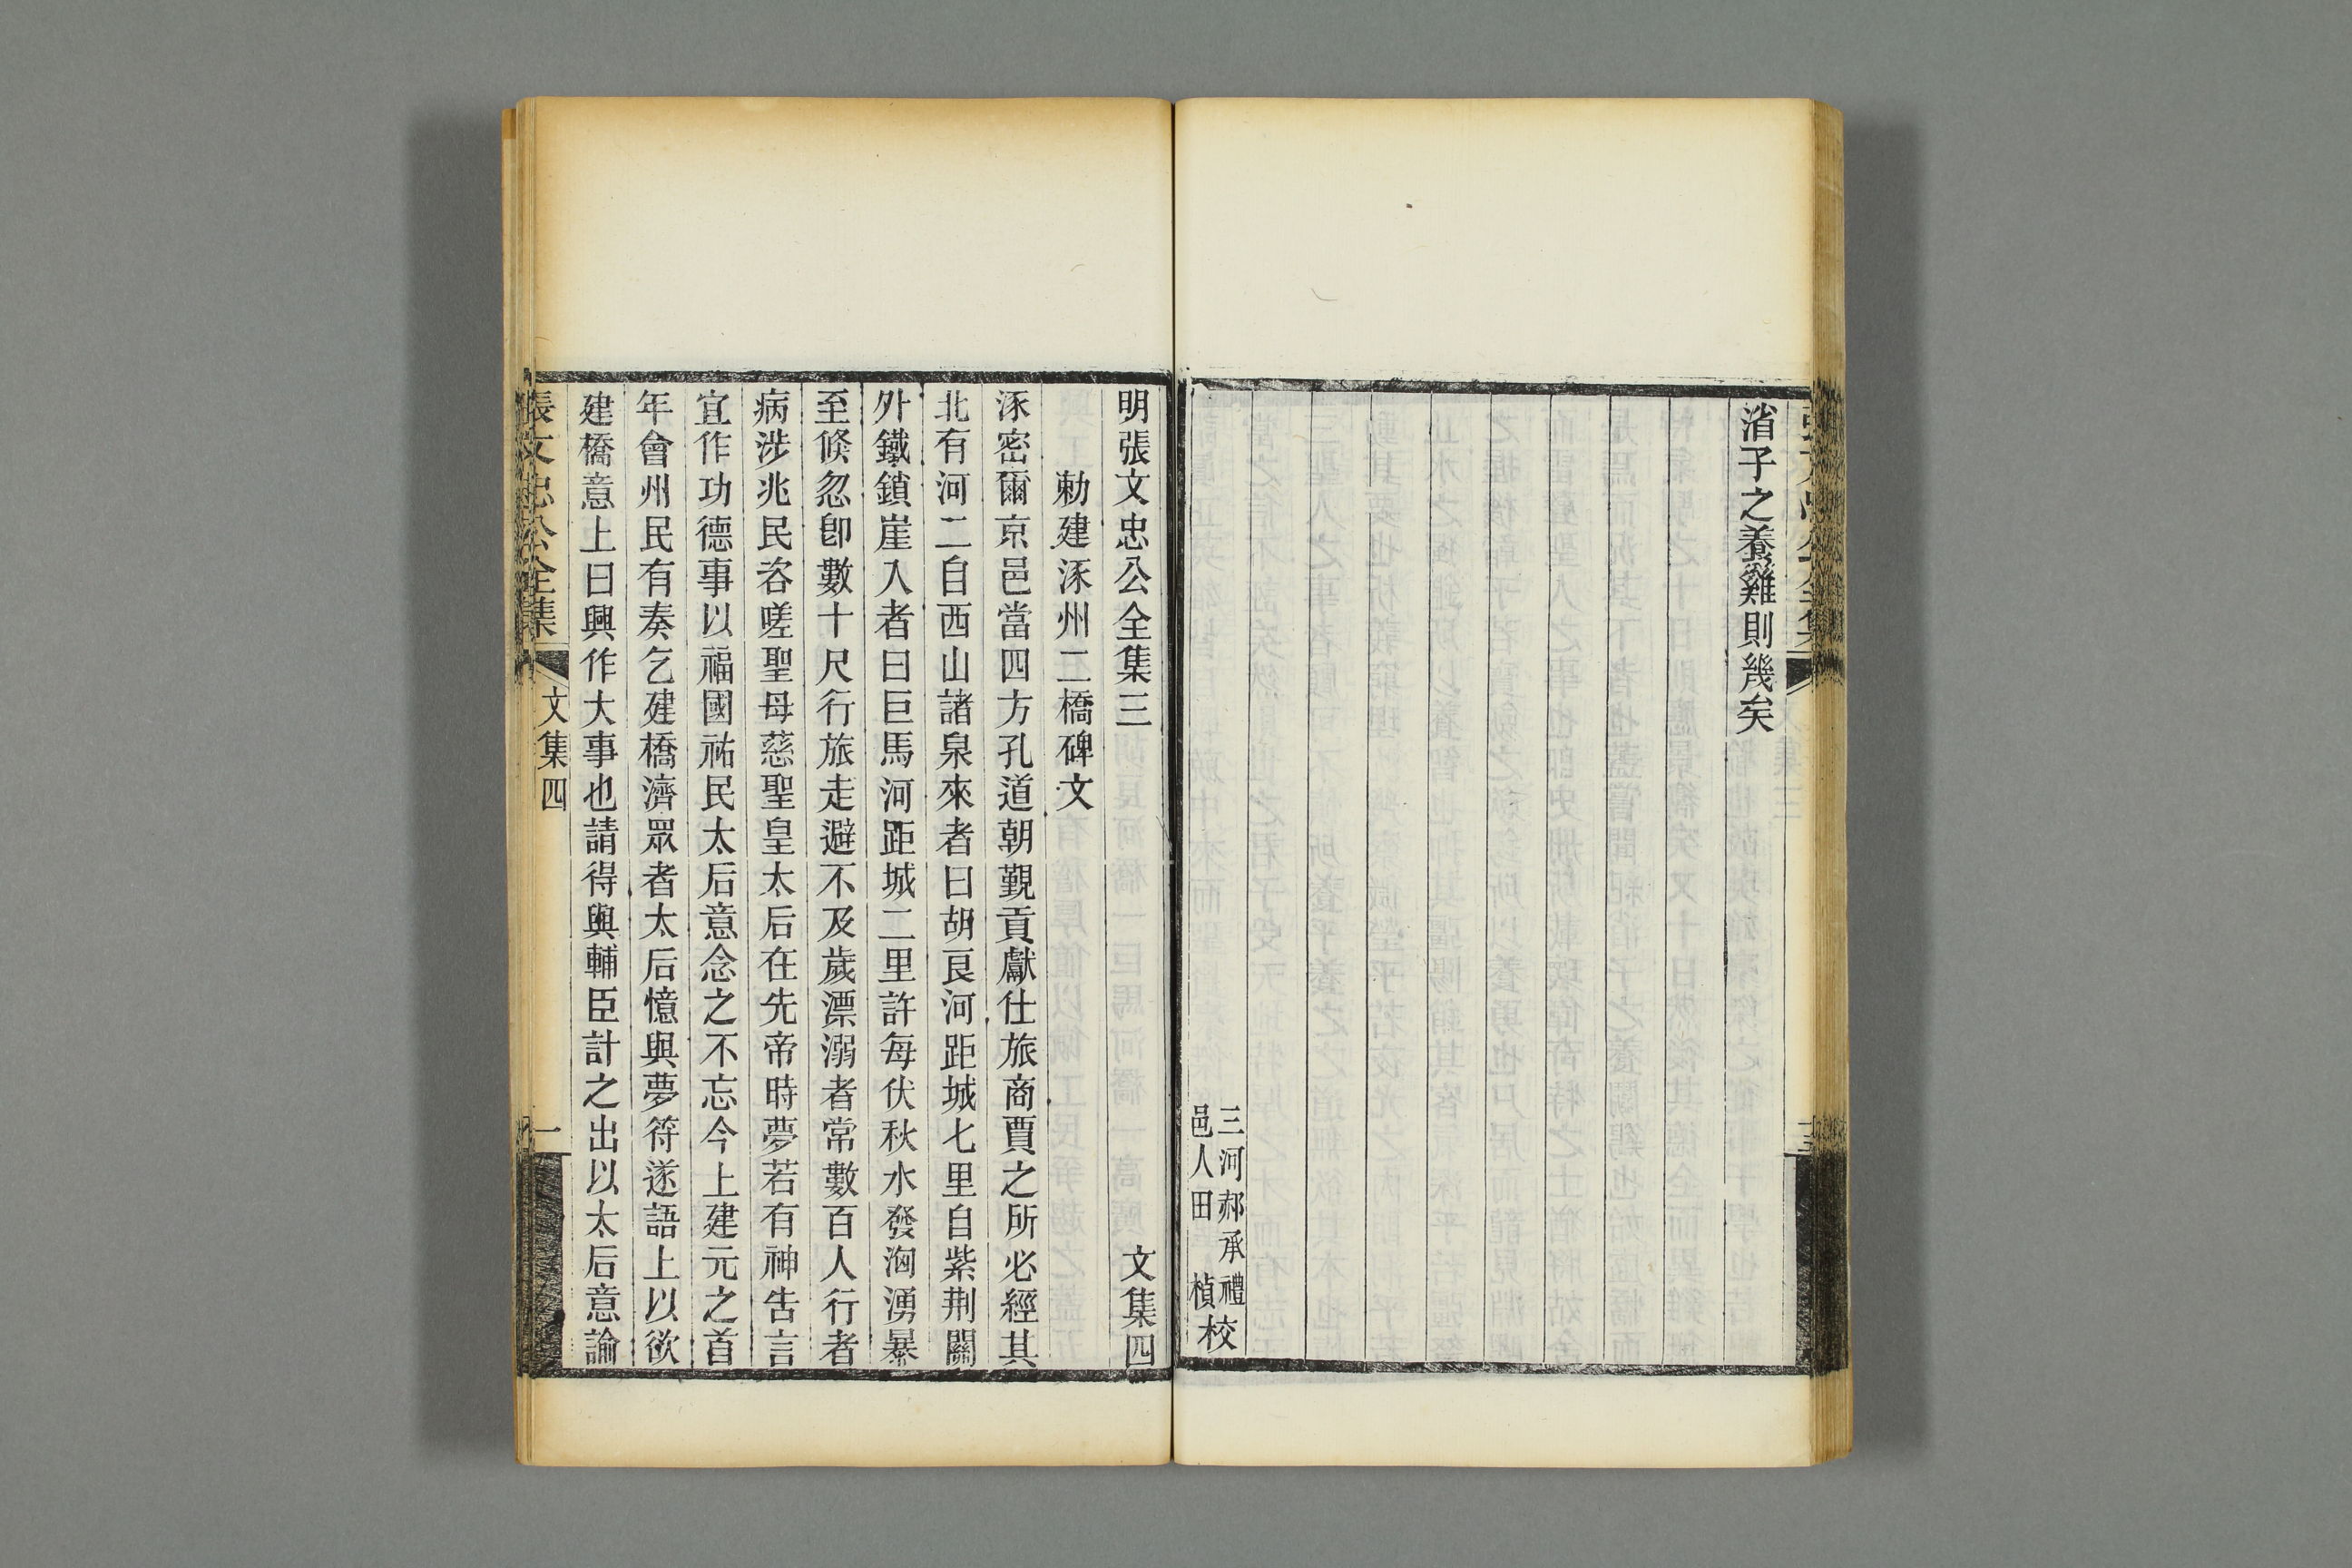 渻子之養雞則幾矣
三河郝承禮
邑人田　楨校
明張文忠公全集三　文集四
勅建涿州二橋碑文
涿密爾京邑當四方孔道朝覲貢獻仕旅商賈之所必經其
北有河二自西山諸泉來者曰胡良河距城七里自紫荆關
外鐵鎖崖入者曰巨馬河距城二里許每伏秋水發洶湧暴
至倏忽卽數十尺行旅走避不及歲漂溺者常數百人行者
病涉兆民咨嗟聖母慈聖皇太后在先帝時夢若有神告言
宜作功德事以福國祐民太后意念之不忘今上建元之首
年會州民有奏乞建橋濟眾者太后憶與夢符遂語上以欲
建橋意上曰興作大事也請得與輔臣計之出以太后意諭
張文忠公全集　文集四　一